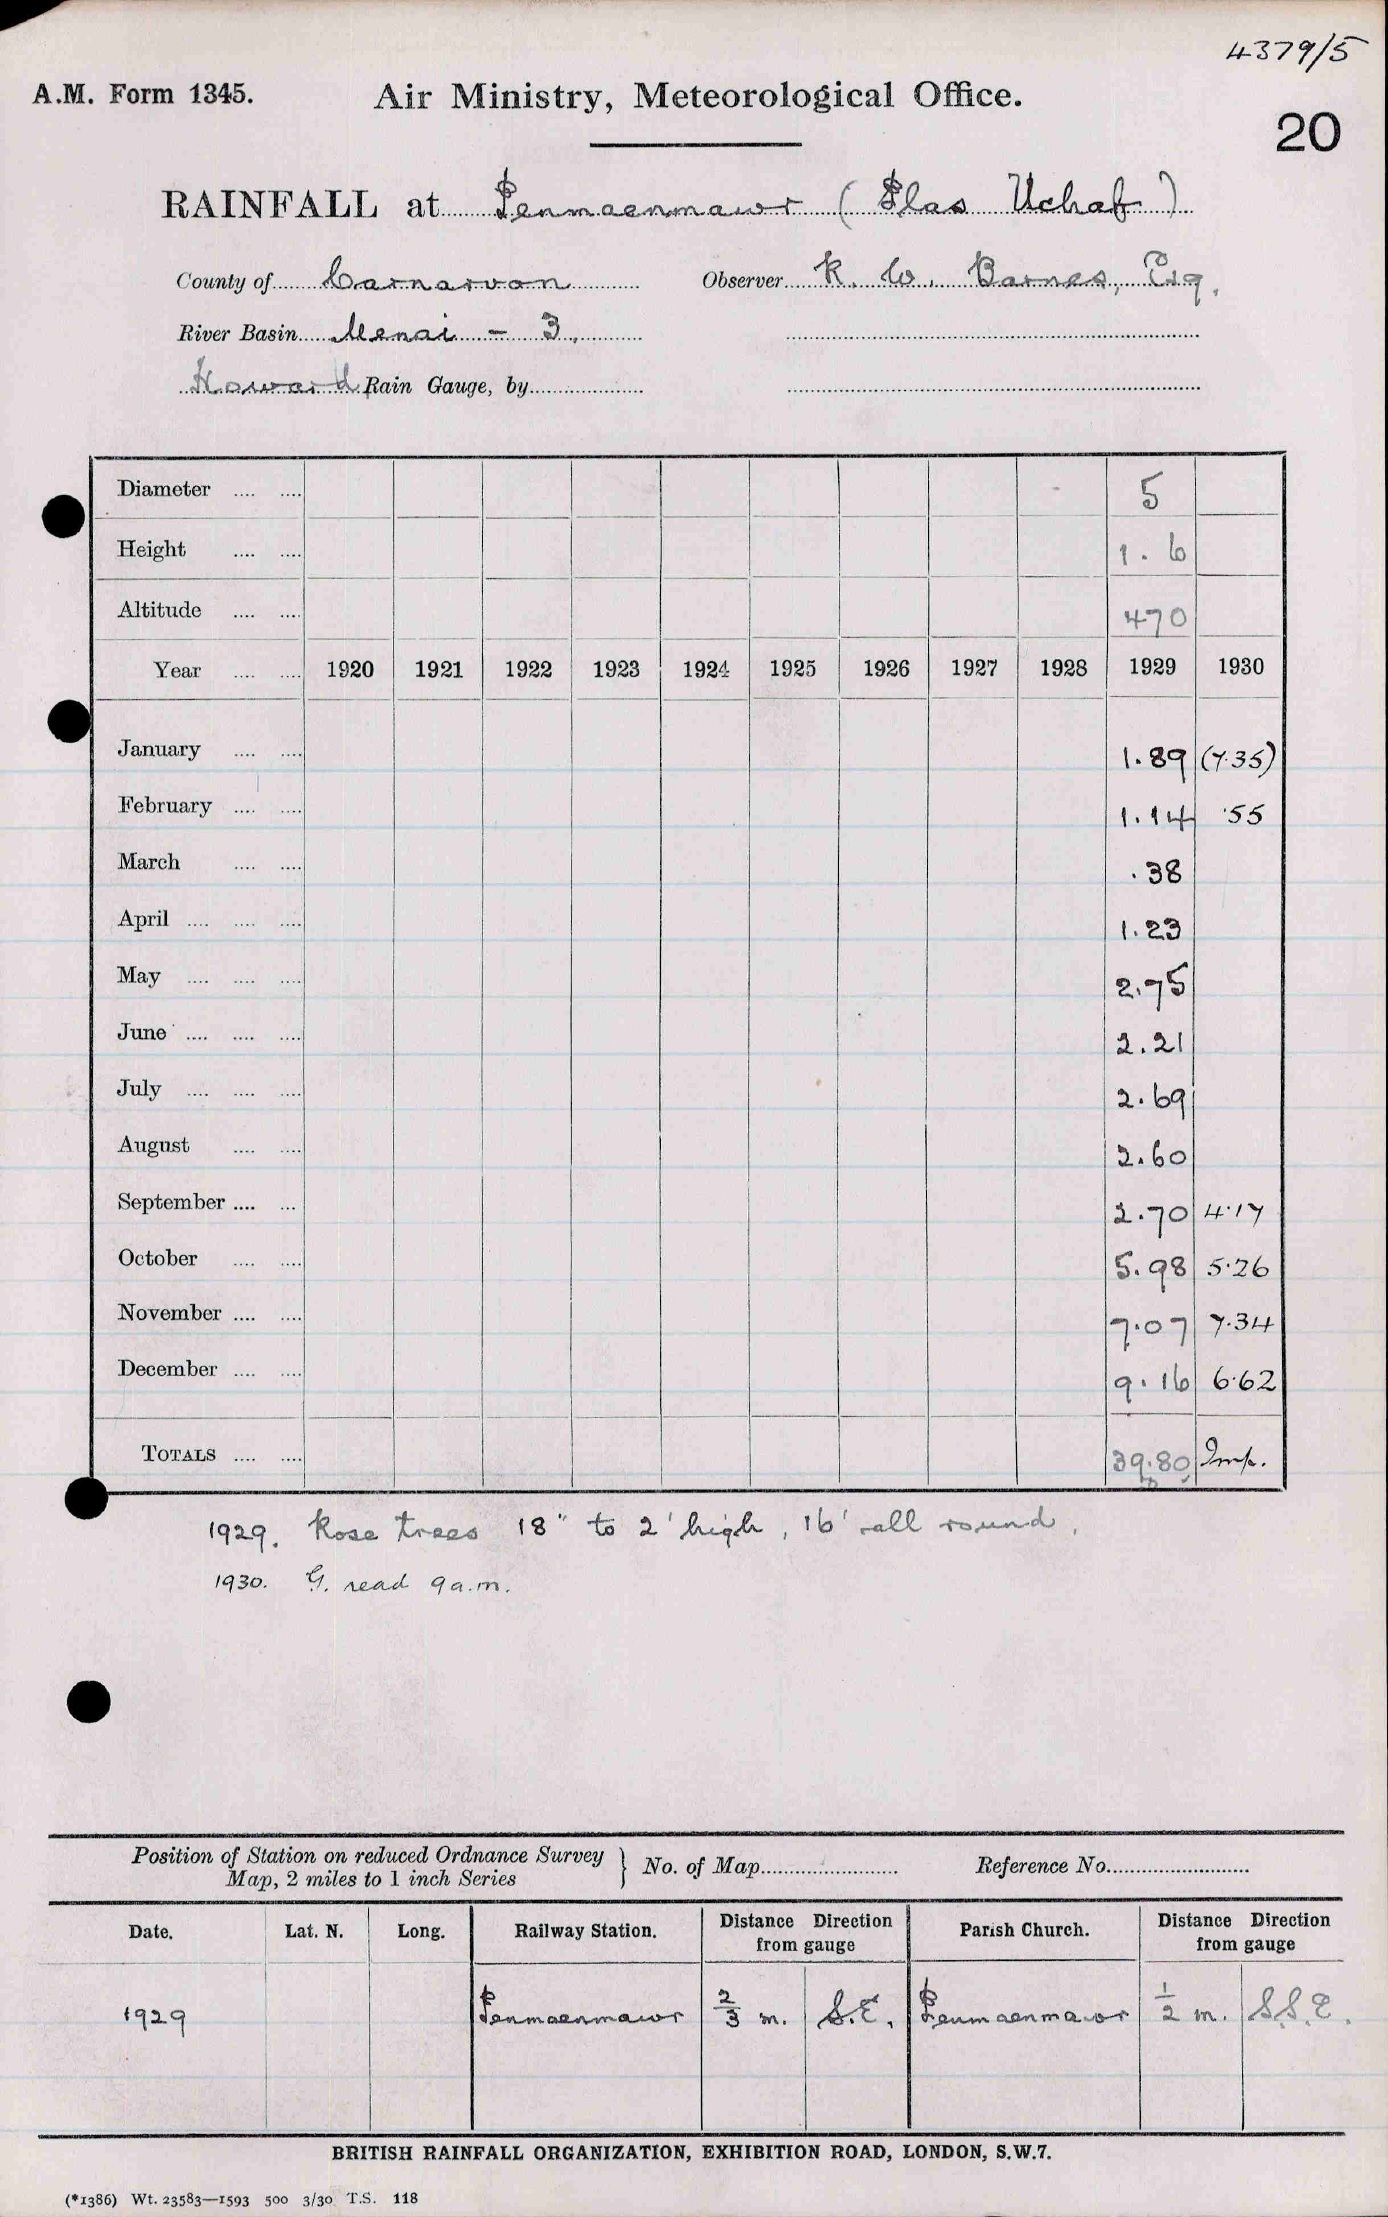 4379/5
A.M. Form 1345. Air Ministry, Meteorological Office.
20
RAINFALL at Penmaenmawr (Plas Uchaf)
County of Carnarvon Observer R. W. Barnes, Esq.
River Basin Menai - 3.
Howard Rain Gauge, by
Diameter .... .... 5
Height .... .... 1.6
Altitude .... .... 470
Year .... .... 1920 1921 1922 1923 1924 1925 1926 1927 1928 1929 1930
January .... .... 1.89 (7.35)
February .... .... 1.14 .55
March .... .... .38
April .... .... .... 1.23
May .... .... .... 2.75
June .... .... .... 2.21
July .... .... .... 2.69
August .... .... 2.60
September .... ... 2.70 4.17
October .... .... 5.98 5.26
November .... .... 7.07 7.34
December .... .... 9.16 6.62
TOTALS .... .... 39.80 Imp.
1929. Rose trees 18" to 2' high, 16' all round.
1930. G. read 9 a.m.
Position of Station on reduced Ordnance Survey
Map, 2 miles to 1 inch Series } No. of Map Reference No.
Date. Lat. N. Long. Railway Station. Distance Direction from gauge Parish Church. Distance Direction from gauge
1929 Penmaenmawr 2/3 m. S.E. Penmaenmawr 1/2 m. S.S.E.
BRITISH RAINFALL ORGANIZATION, EXHIBITION ROAD, LONDON, S.W.7.
(*1386) Wt. 23583—1593 500 3/30 T.S. 118